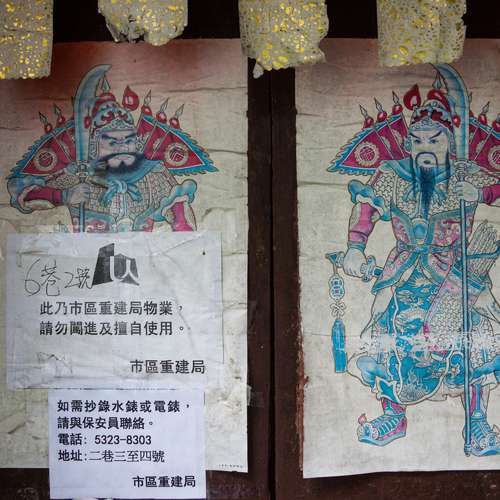 6巷2號
此乃市區重建局物業，
請勿闖進及擅自使用。
市區重建局
如需抄錄水錶或電錶，
請與保安員聯絡。
電話: 5323-8303
地址:二巷三至四號
市區重建局